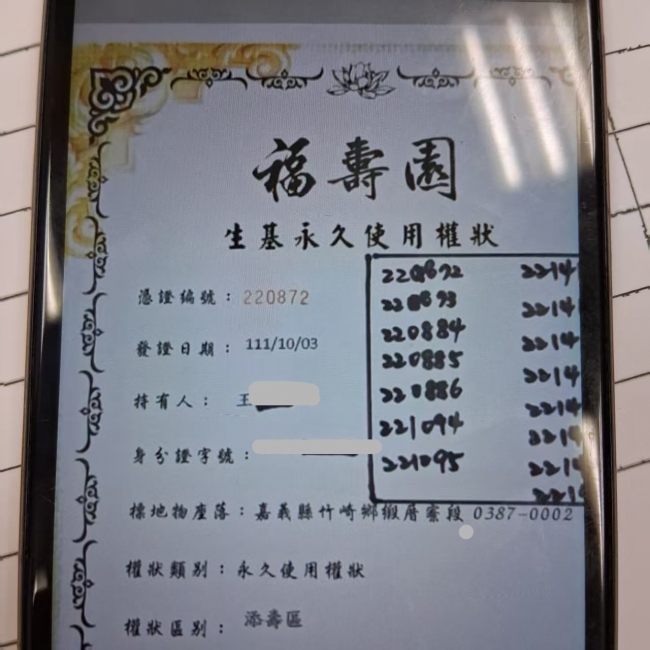 福壽園
生基永久使用權狀
憑證編號：220872
發證日期：111/10/03
持有人：王
身分證字號：
標地物座落：嘉義縣竹崎鄉緞厝寮段 0387-0002
權狀類別：永久使用權狀
權狀區別：添壽區
220872 2214
220873 2214
220884 2214
220885 2214
220886 2214
221094 2214
221095 2214
2214